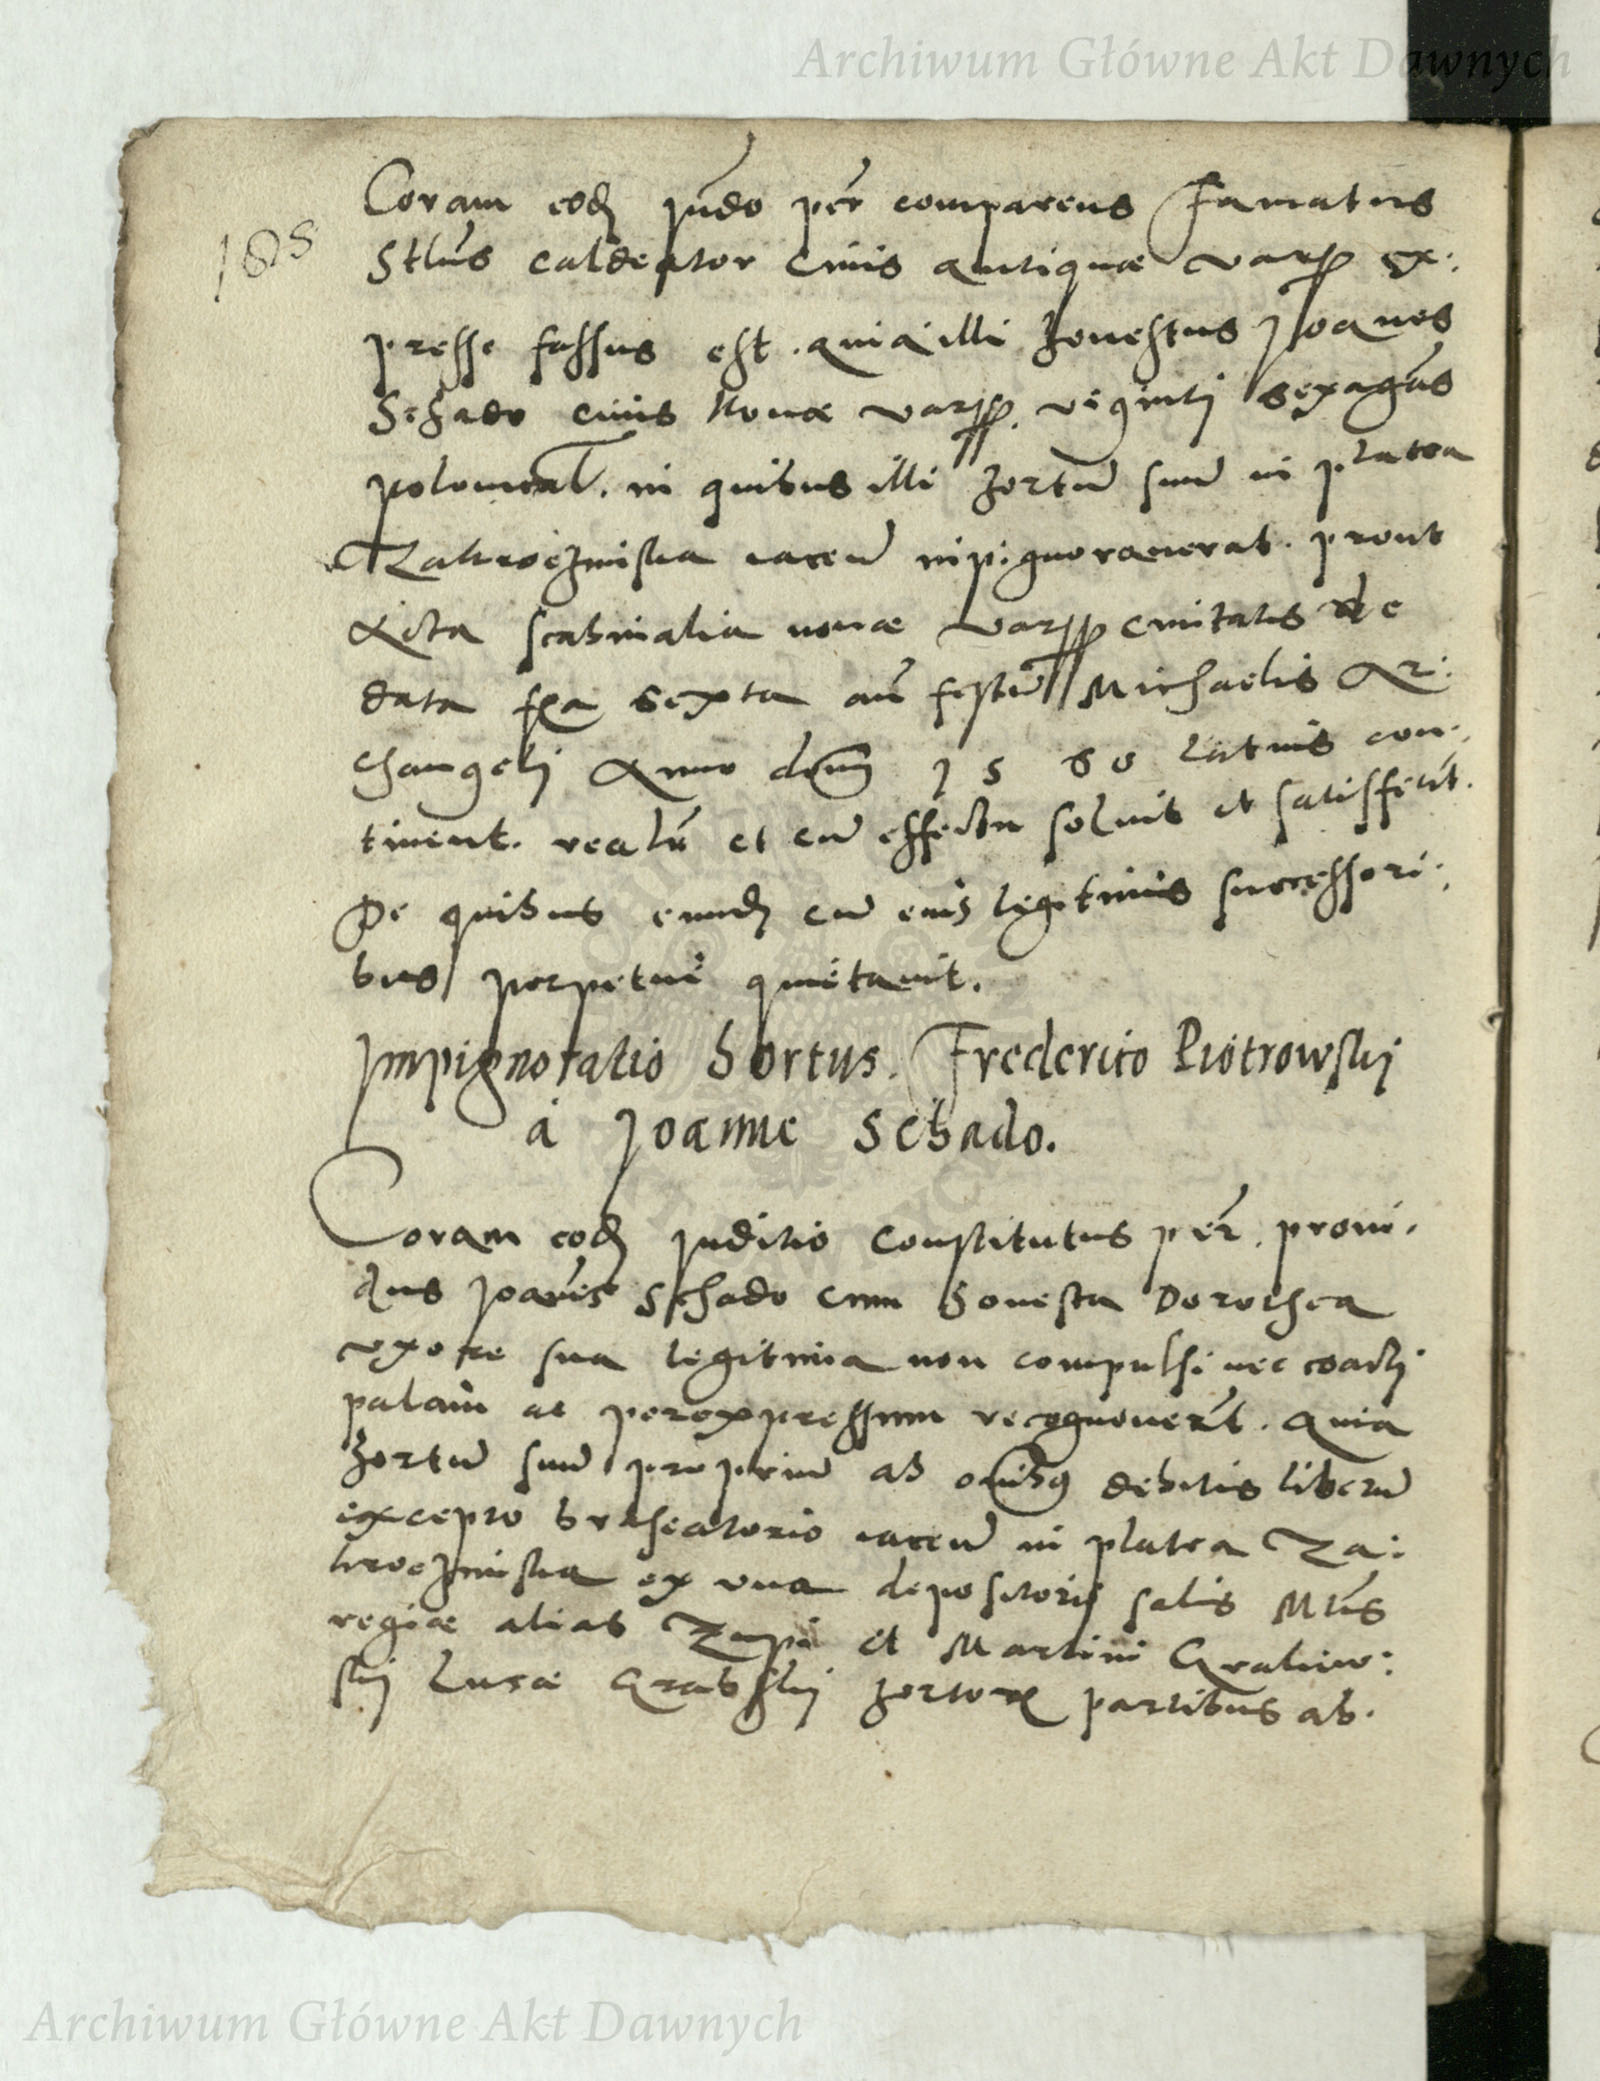 Archiwum Główne Akt Dawnych
185
Coram eod Judo per comparens Famatus
Stlus caldeator civis antiquæ Vars ex:
presse fassus est. quia illi honestus Joanes
Schado civis Novæ Vars. viginti sexagenas
polonical. in quibus illi hortu suu in platea
Zakroczimska iacen inpignoraverat. prout
Acta scabinalia novæ Vars civitatis de
data fra sexta an festu Michaelis Ar:
changeli Anno domi 1580 latius con:
tinent. realr et cu effectu solvit et satisffecit.
De quibus eund cu eius legitimis successori:
bus perpetue quietavit.
Impignoratio hortus. Frederico Piotrowskij
à Joanne Schado.
Coram eod Juditio Constitutus per. provi.
dus Joanes Schado cum honesta Dorothea
uxore sua legitima non compulsi nec coacti
palam ac perexpressum recognoverut. Quia
hortu suu propriu ab omibus debitis liberu
excepto braseatorio iacen in platea Za:
kroczimska ex una depositorij salis Mtis
regiæ alias Zupi et Martini Grabiow:
skij Lucæ Grabskij hortor partibus ab.
Archiwum Główne Akt Dawnych